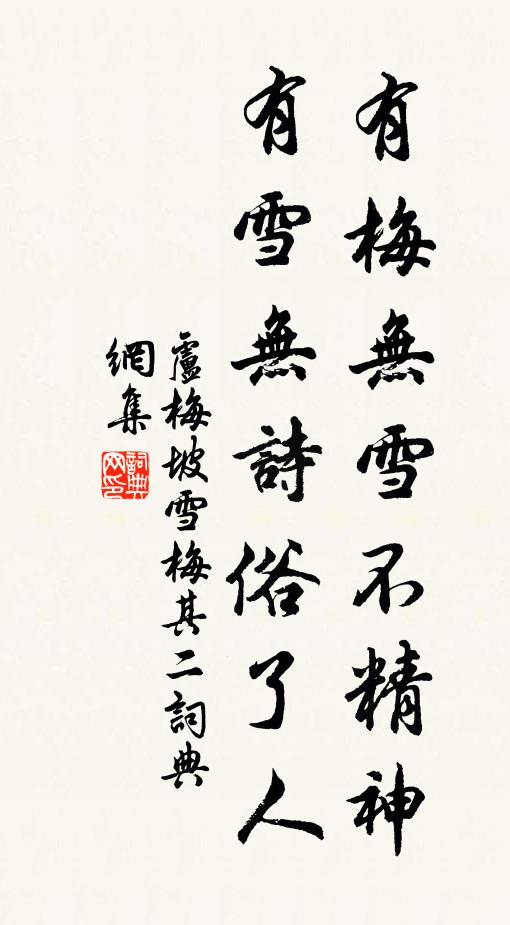 有梅無雪不精神
有雪無詩俗了人
盧梅坡雪梅其二詞典
網集
詞典网印